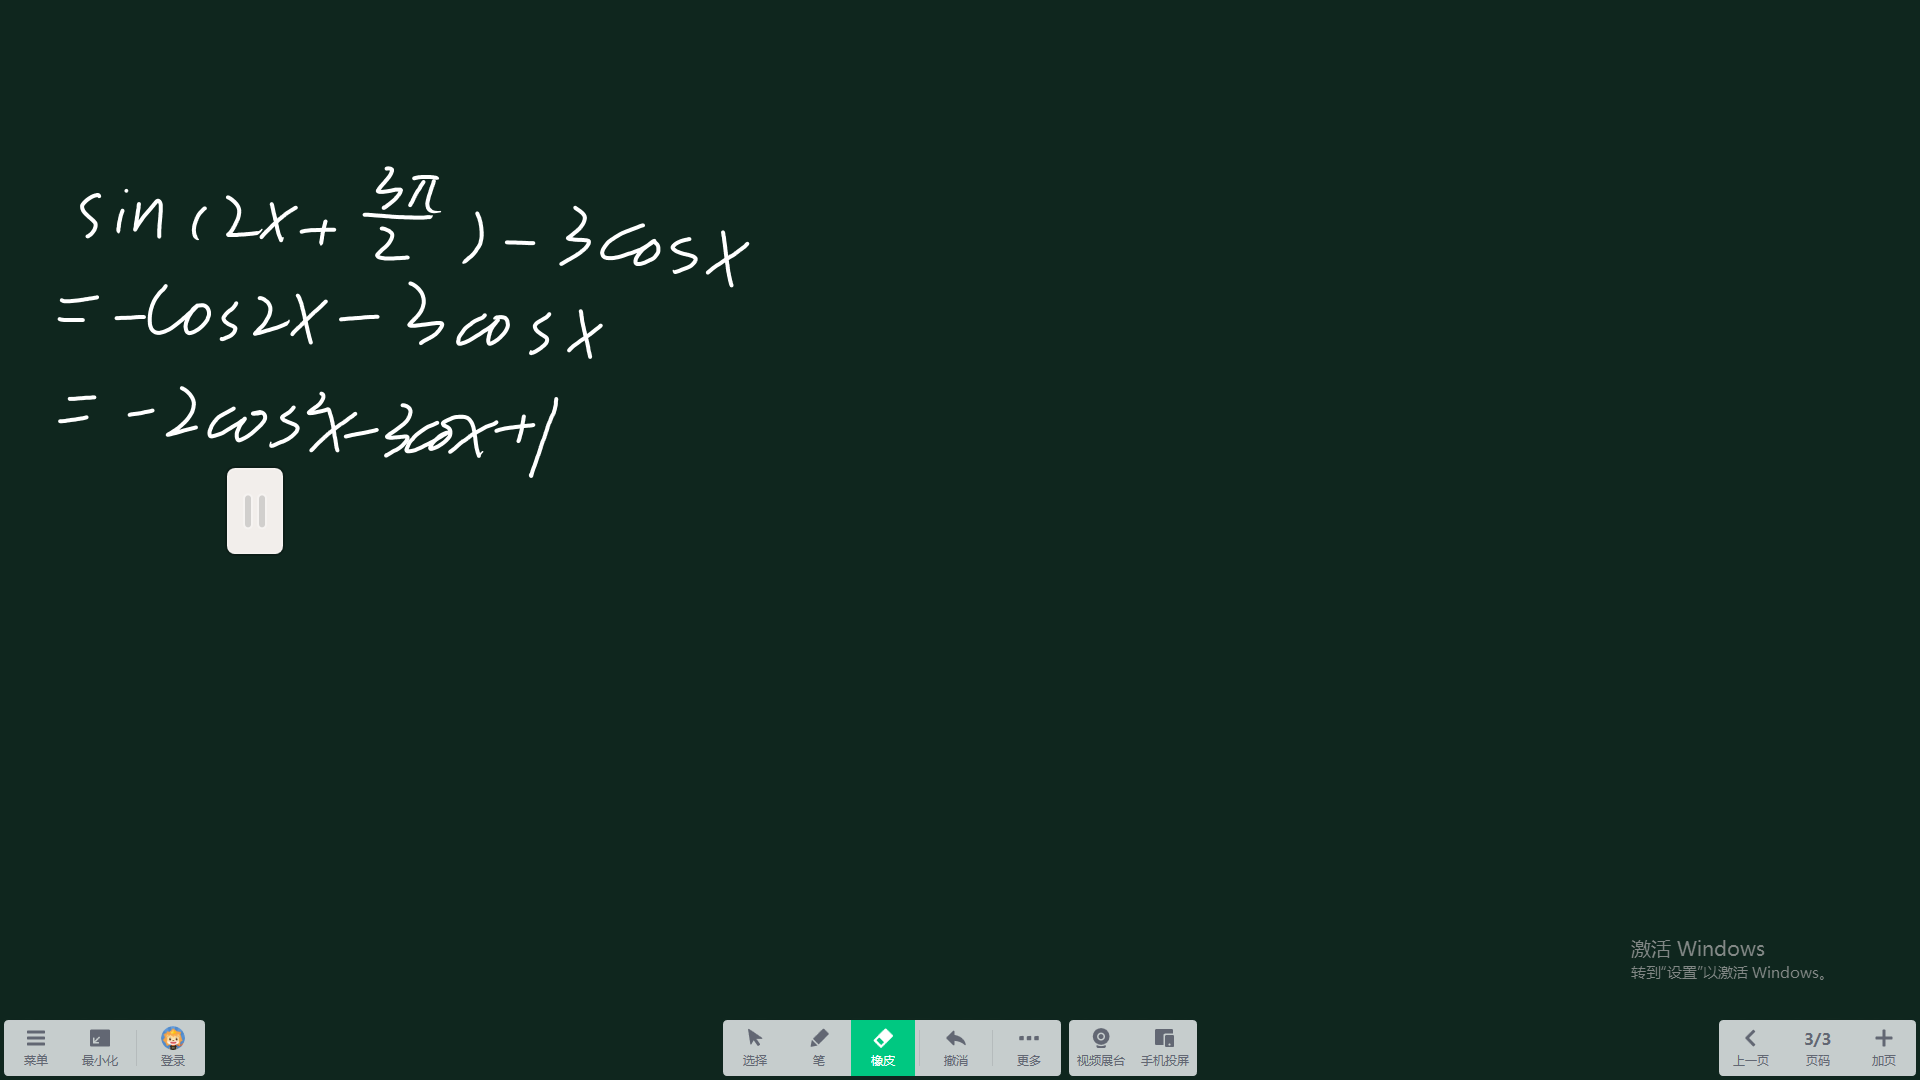 sin(2x+3π/2)-3cosx
=-cos2x-3cosx
=-2cos²x-3cosx+1
激活 Windows
转到“设置”以激活 Windows。
菜单 最小化 登录 选择 笔 橡皮 撤消 更多 视频展台 手机投屏 上一页 3/3 页码 加页